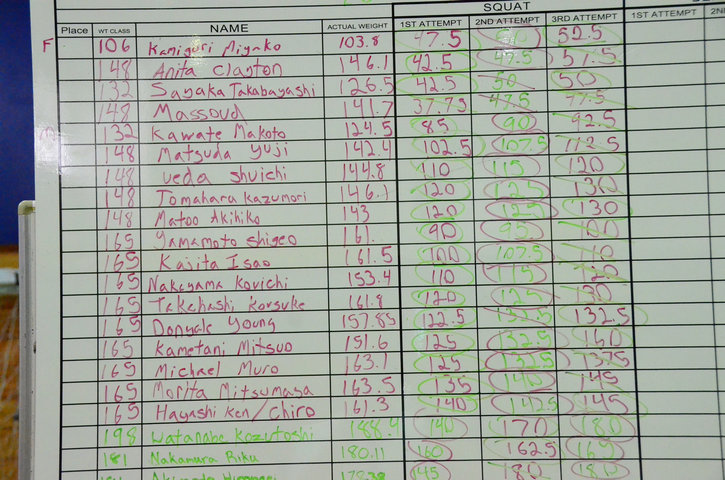 SQUAT
Place WT CLASS NAME ACTUAL WEIGHT 1ST ATTEMPT 2ND ATTEMPT 3RD ATTEMPT 1ST ATTEMPT
F 106 Kamiguri Miyako 103.8 47.5 50 52.5
148 Anita Clayton 146.1 42.5 47.5 57.5
132 Sayaka Takabayashi 126.5 42.5 50 50
148 Massoud 141.7 37.75 47.5 77.5
M 132 Kawate Makoto 124.5 85 90 92.5
148 Matsuda Yuji 142.4 102.5 107.5 112.5
148 Ueda Shuichi 144.8 110 115 120
148 Tomahara Kazumori 146.1 120 125 130
148 Matoo Akihiko 143 120 125 130
165 Yamamoto Shigeo 161. 90 95 100
165 Kajita Isao 161.5 100 107.5 110
165 Nakayama Kouichi 153.4 110 115 120
165 Takahashi Korsuke 161.8 120 125 130
165 Donyale Young 157.85 122.5 132.5 132.5
165 Kametani Mitsuo 151.6 125 132.5 140
165 Michael Muro 163.1 125 132.5 137.5
165 Morita Mitsumasa 163.5 135 140 145
165 Hayashi Ken/chiro 161.3 140 142.5 145
198 Watanabe Kozutoshi 188.4 140 170 180
181 Nakamura Riku 180.11 160 162.5 165
145 180 180